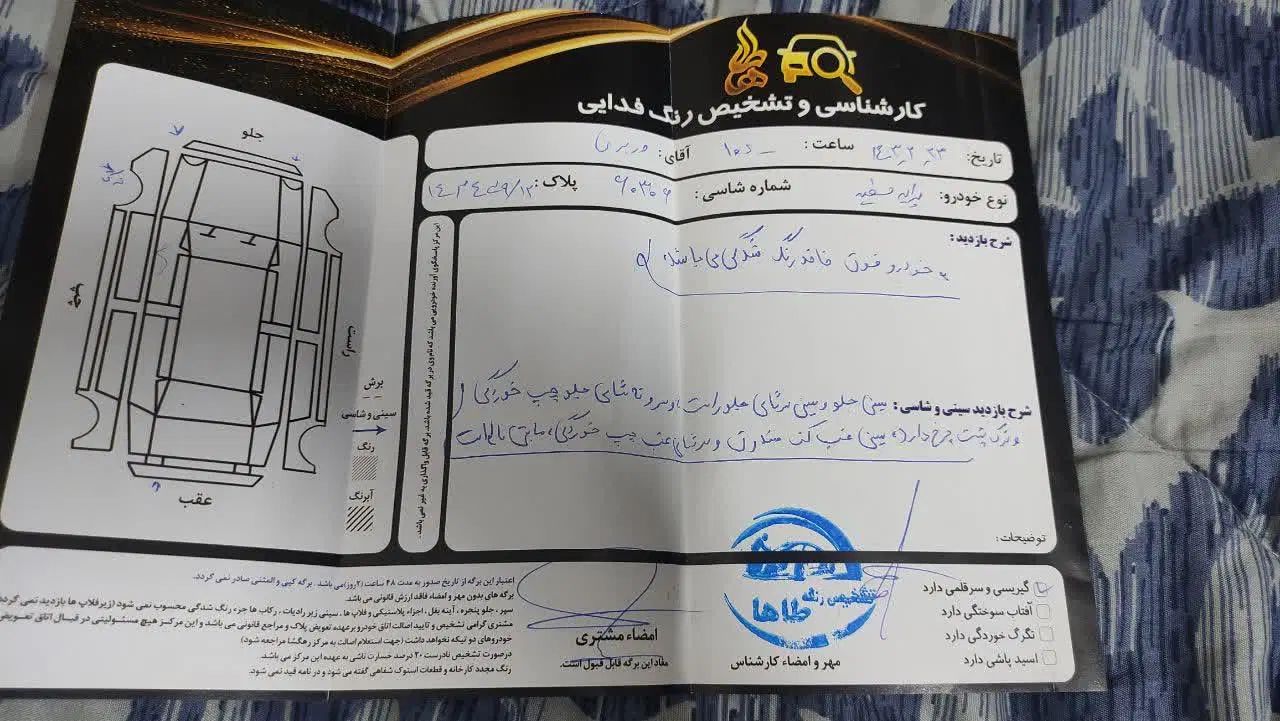 کارشناسی و تشخیص رنگ فدایی
تاریخ: ساعت: آقای:
نوع خودرو: شماره شاسی: ۶۰۳۰۶ پلاک:
شرح بازدید:
خودرو فوق فاقد رنگ شدگی می باشد
شرح بازدید سینی و شاسی: سینی جلو و سینی سرشاسی جلو راست و سروته شاسی جلو چپ خوردگی
و ترک پشت چرخ دارد، سینی عقب کف صندوق و سرشاسی عقب چپ خوردگی
توضیحات:
جلو
چپ
راست
عقب
برش
سینی و شاسی
رنگ
آبرنگ
این مرکز پاسخگوی آورنده خودرویی می باشد که نام وی در برگه قید شده باشد. برگه قابل واگذاری به غیر نمی باشد.
گیریسی و سرقلمی دارد
آفتاب سوختگی دارد
تگرگ خوردگی دارد
اسید پاشی دارد
تشخیص رنگ
طاها
مهر و امضاء کارشناس
امضاء مشتری
مفاد این برگه قابل قبول است.
اعتبار این برگه از تاریخ صدور به مدت ۴۸ ساعت (۲روز) می باشد. برگه کپی و المثنی صادر نمی گردد.
برگه های بدون مهر و امضاء فاقد ارزش قانونی می باشد.
سپر، جلو پنجره، آینه بغل، اجزاء پلاستیکی و قلاب ها، سینی زیر رادیات، رکاب ها جزء رنگ شدگی محسوب نمی شود (زیرقلاب ها بازدید نمی گردد)
مشتری گرامی تشخیص و تایید اصالت اتاق خودرو برعهده تعویض پلاک و مراجع قانونی می باشد و این مرکز هیچ مسئولیتی در قبال اتاق تعویض
خودروهای دو تیکه نخواهد داشت (جهت استعلام اصالت به مرکز رهگشا مراجعه شود)
درصورت تشخیص نادرست ۲۰ درصد خسارت ناشی به عهده این مرکز می باشد.
رنگ مجدد کارخانه و قطعات استوک شفاهی گفته می شود و در نامه قید نمی شود.